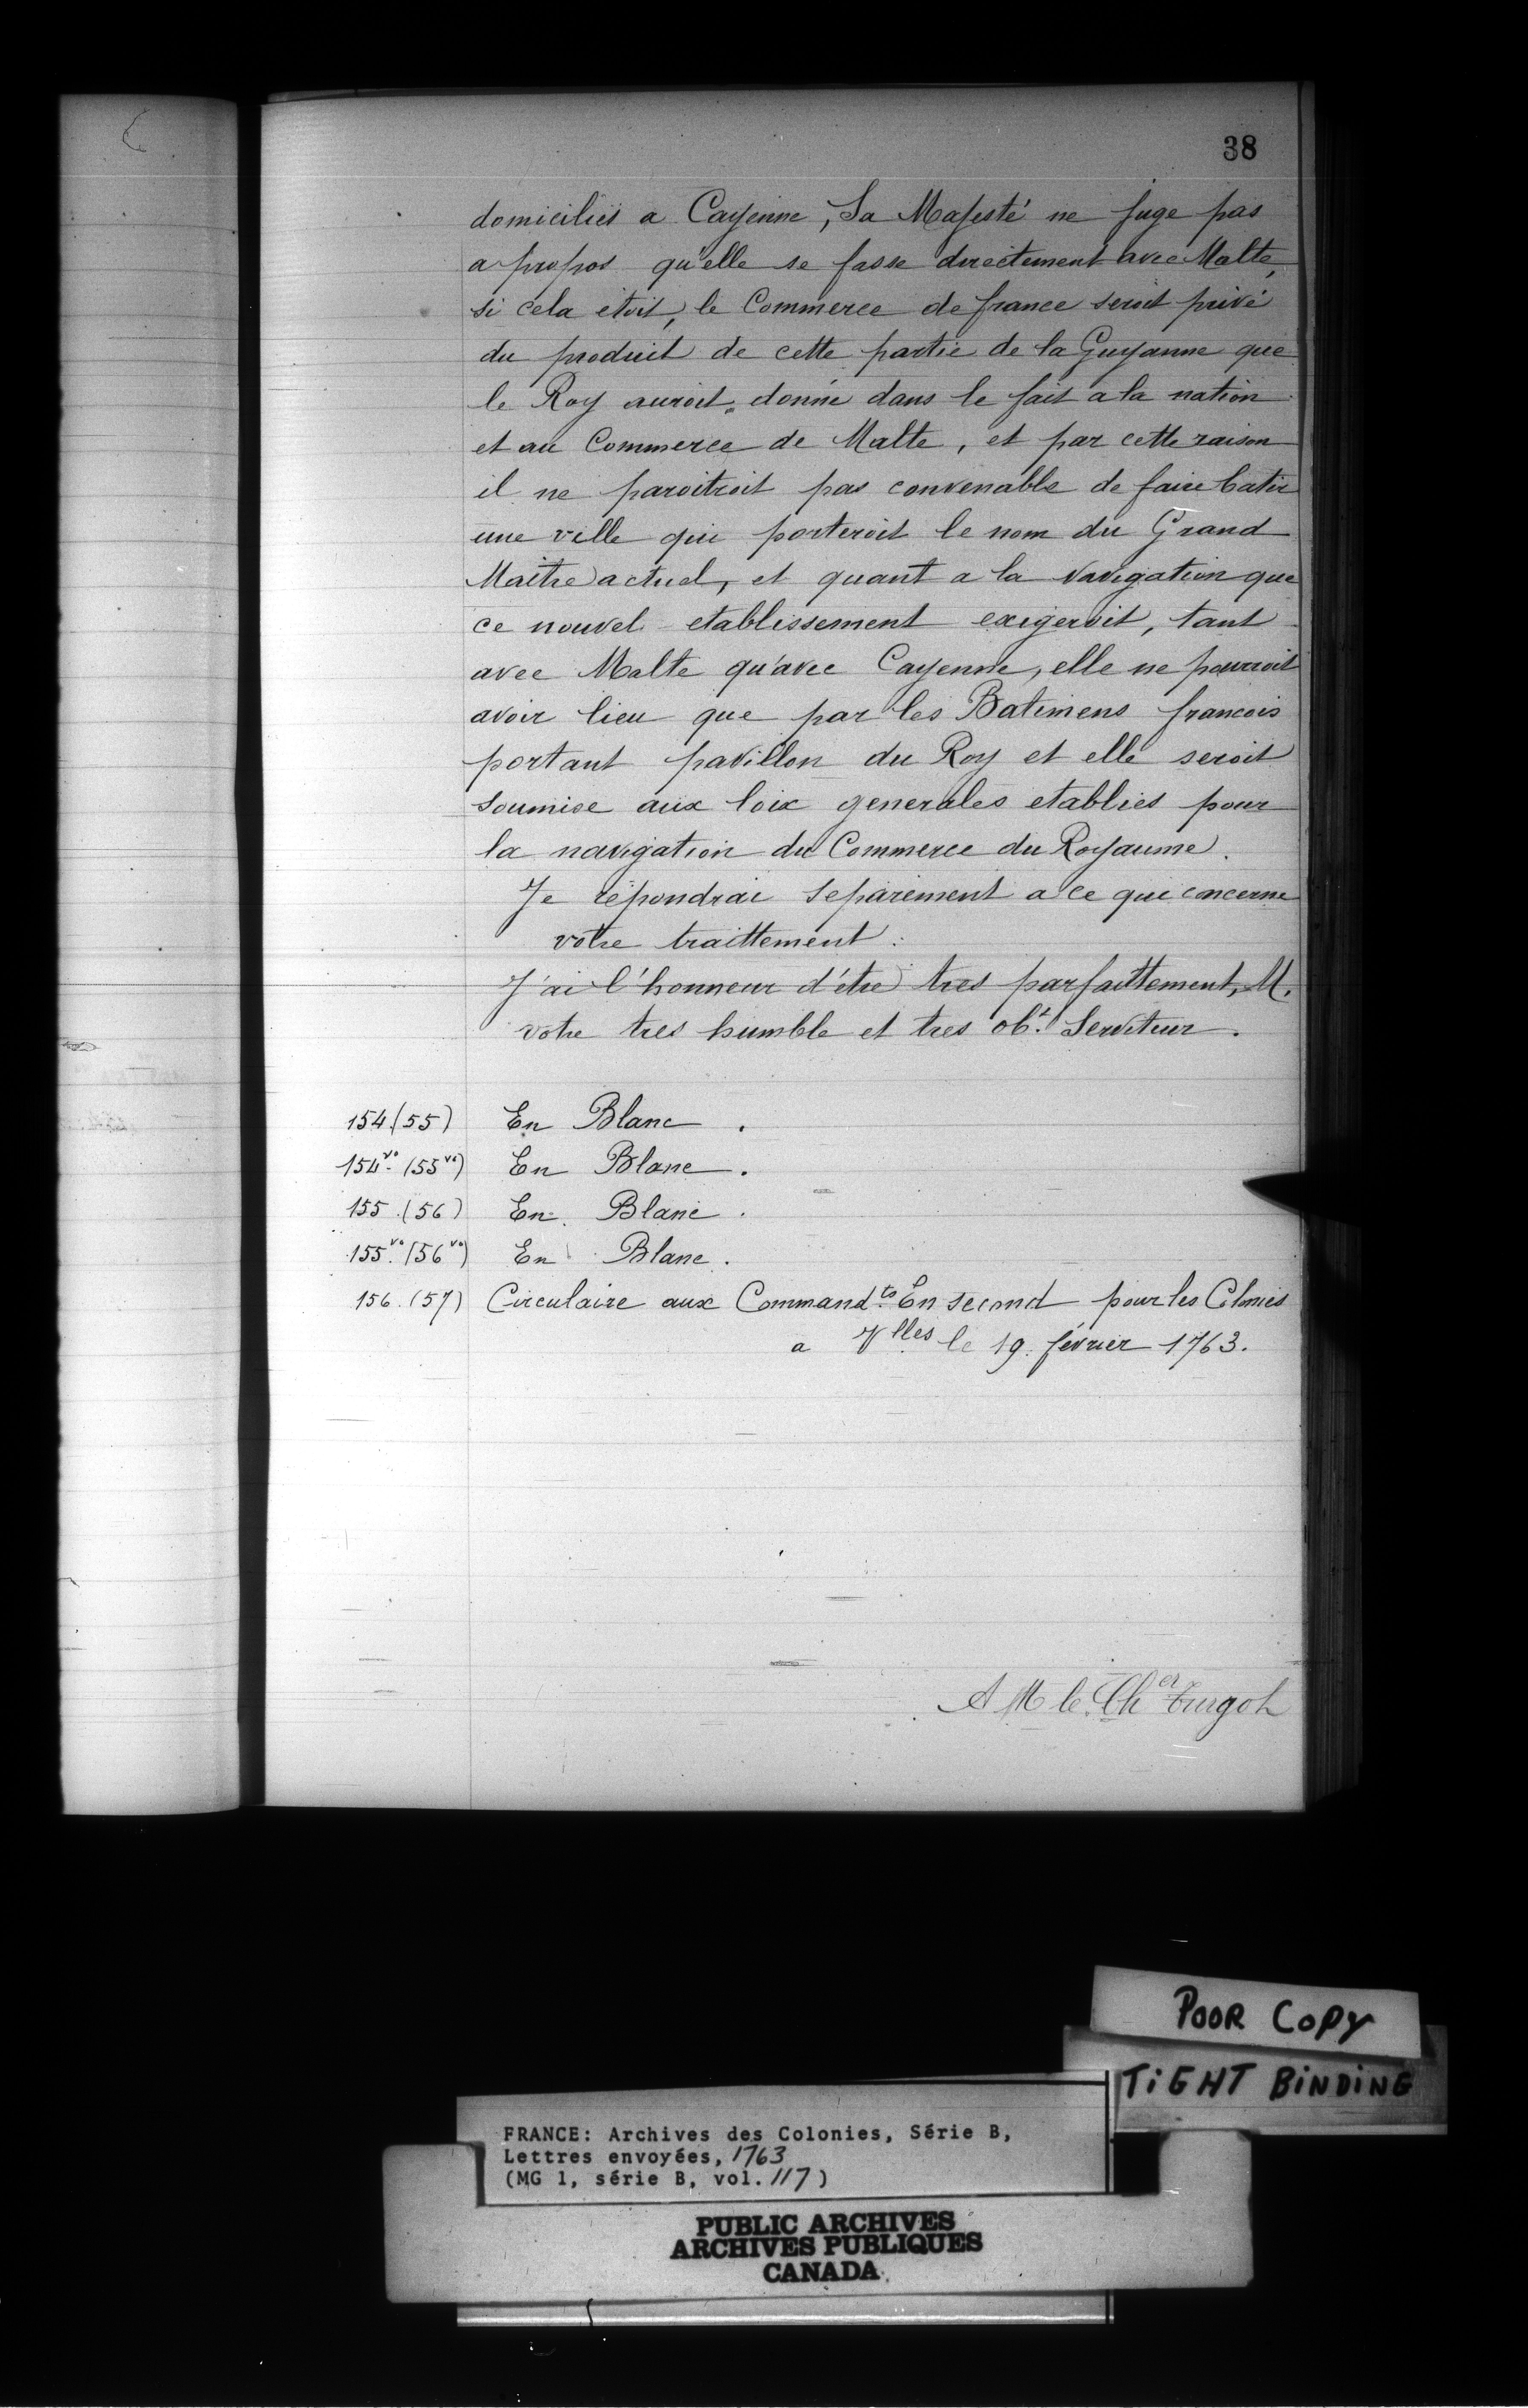 38
domiciliés a Cayenne, Sa Majesté ne juge pas
a propos qu'elle se fasse directement avec Malte,
si cela etoit, le Commerce de france seroit privé
du produit de cette partie de la Guyanne que
le Roy auroit donné dans le fait a la nation
et au Commerce de Malte, et par cette raison
il ne paroitroit pas convenable de faire batir
une ville qui porteroit le nom du Grand
Maitre actuel, et quant a la navigation que
ce nouvel etablissement exigeroit, tant
avec Malte qu'avec Cayenne, elle ne pourroit
avoir lieu que par les Batimens francois
portant pavillon du Roy et elle seroit
soumise aux loix generales etablies pour
la navigation du Commerce du Royaume.
Je répondrai separement a ce qui concerne
votre traittement.
J'ai l'honneur d'étre tres parfaittement, M.
votre tres humble et tres obt. Serviteur.
154 (55) En Blanc.
154vo. (55vo) En Blanc.
155. (56) En Blanc.
155vo. (56vo) En Blanc.
156. (57) Circulaire aux Command.ts En second pour les Colonies
a Vlles le 19. février 1763.
A M le Cher Turgot
POOR COPY
TIGHT BINDING
FRANCE: Archives des Colonies, Série B,
Lettres envoyées, 1763
(MG 1, série B, vol. 117)
PUBLIC ARCHIVES
ARCHIVES PUBLIQUES
CANADA